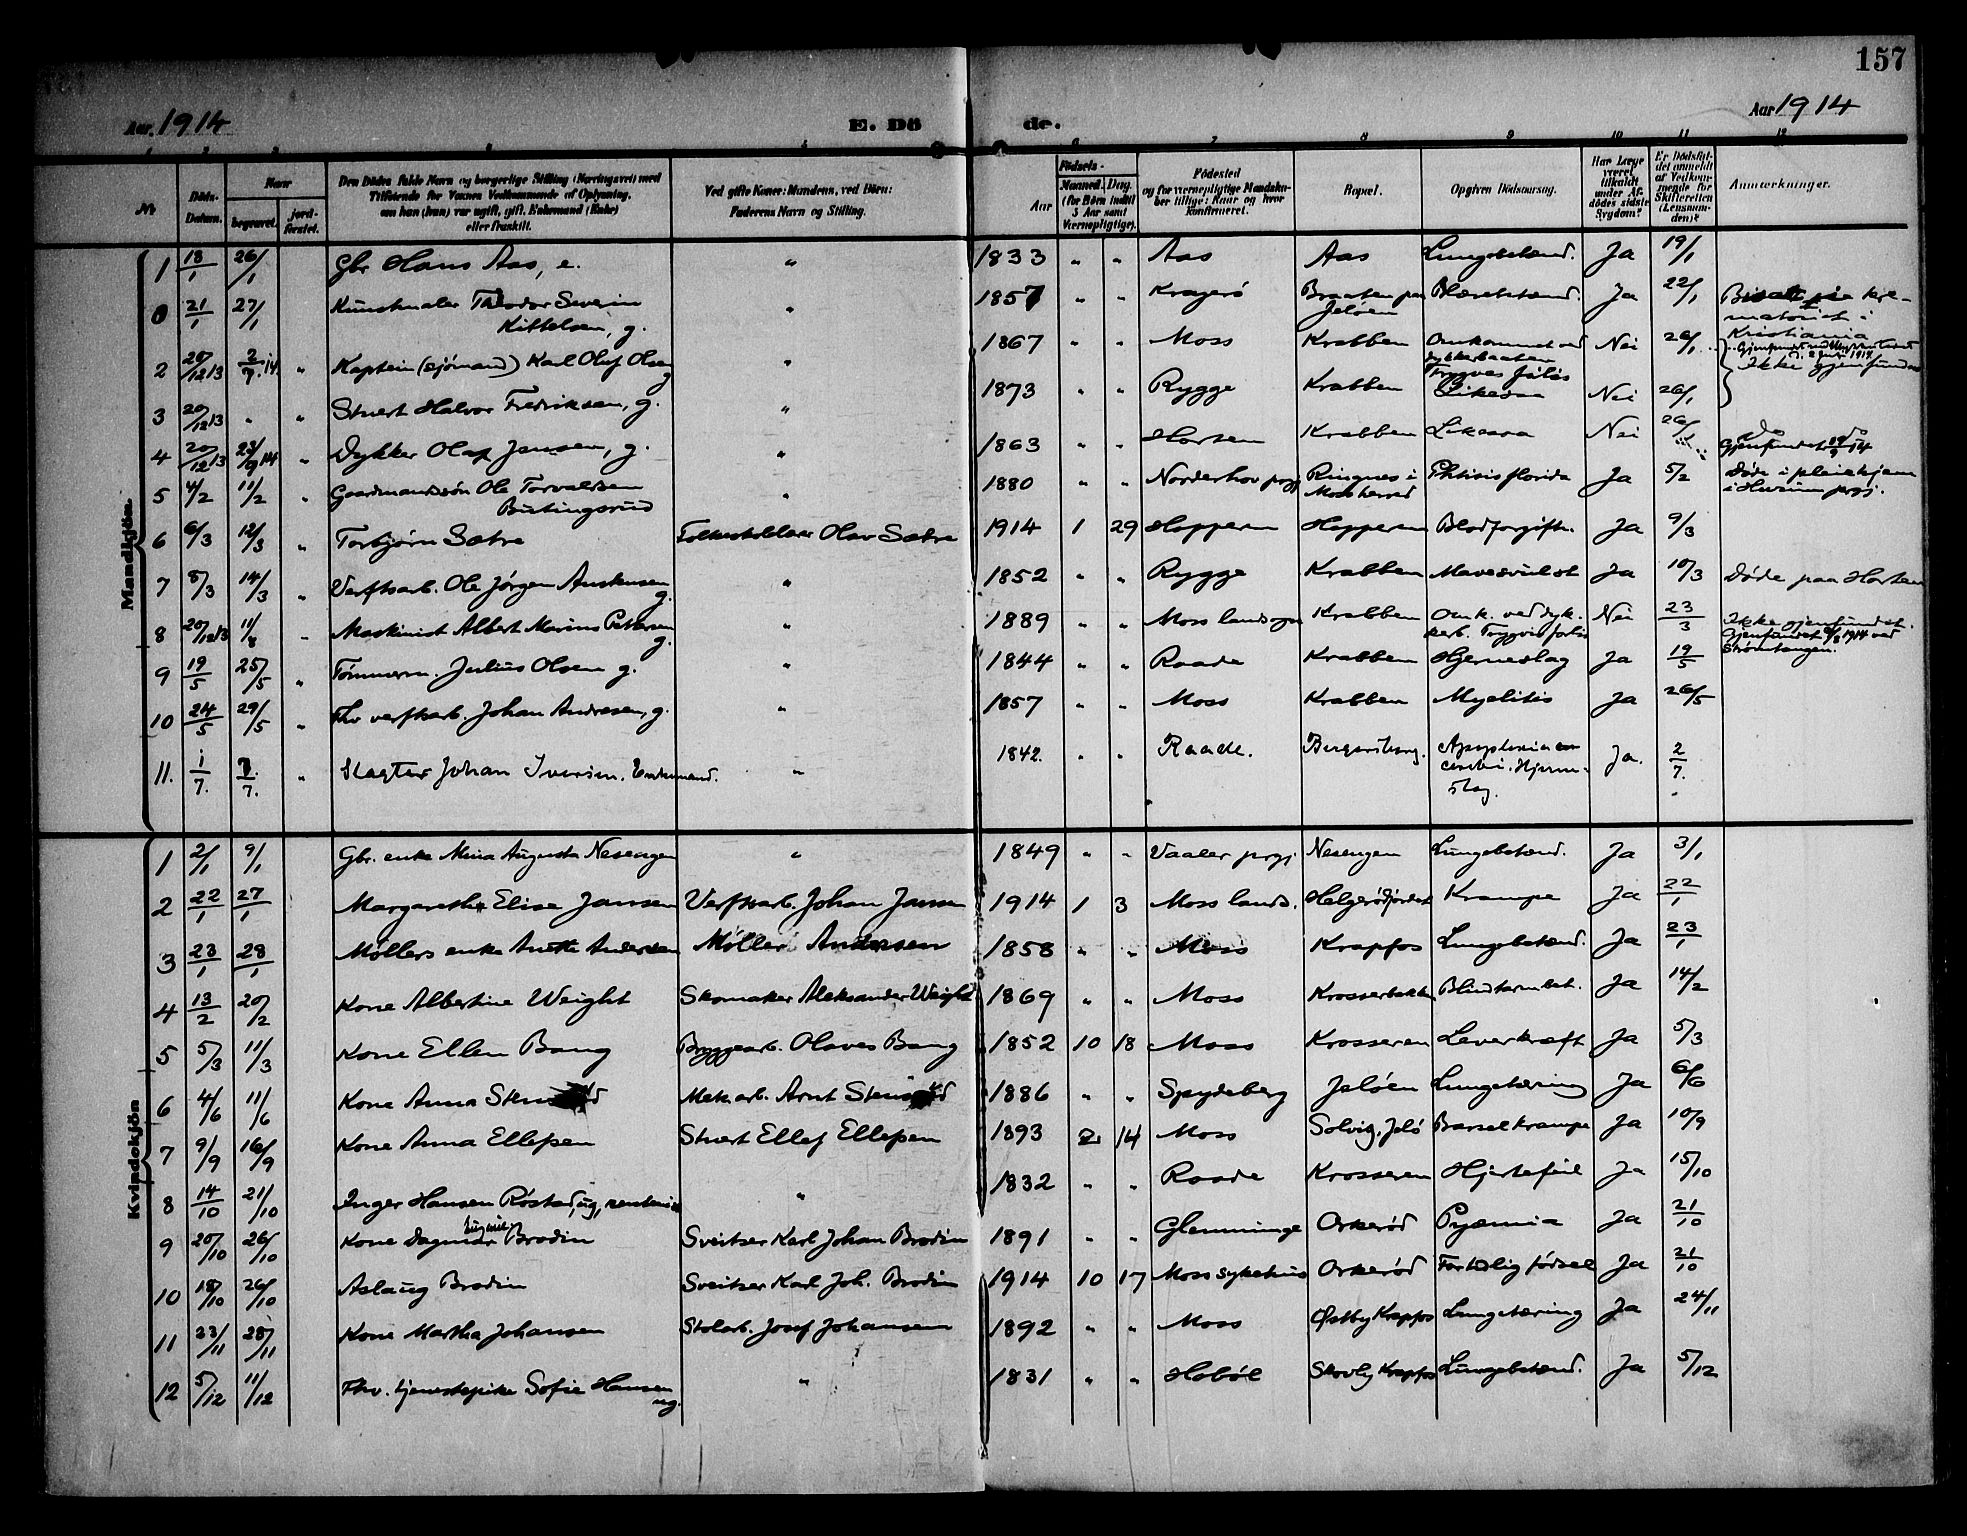 157
Aar. 1914
E. Dö
de.
Aar 1914
1 2 3 4 5 6 7 8 9 10 11 12
Nr
Döds-Datum.
Naar
begravet.
jord-fæstet.
Den Dödes fulde Navn og borgerlige Stilling (Næringsvei) med
Tilföiende for Voxnes Vedkommende af Oplysning,
om han (hun) var ugift, gift, Enkemand (Enke)
eller fraskilt.
Ved gifte Koner: Mandens, ved Börn:
Faderens Navn og Stilling.
Aar
Födsels-
Maaned. Dag.
(for Börn indtil
3 Aar samt
Værnepligtige).
Födested
og for værnepligtige Mandska-
ber tillige: Naar og hvor
konfirmeret.
Bopæl.
Opgiven Dödsaarsag.
Har Læge
været
tilkaldt
under Af-
dödes sidste
Sygdom?
Er Dödsfal-
det anmeldt
af Vedkom-
mende for
Skifteretten
(Lensman-
den)?
Anmærkninger.
Mandkjön.
1 18/1 26/1 Gbr. Hans Aas, e. " 1833 " " Aas Aas Lungebetænd. Ja 19/1
0 21/1 27/1 Kunstmaler Theodor Severin Kittelsen, g. " 1857 " " Kragerö Braaten paa Jeløen Blærebetænd. Ja 22/1 Bisat krematoriet i Kristiania
2 20/12 13 2/7.14 " Kaptein (sjömand) Karl Oluf Olsen g " 1867 " " Moss Krabben Omkommet ved dykkerbaaten Trygves forlis Nei 26/1 Gjenfundet 2 Juli 1914
3 20/12 13 " " Stuert Halvor Fredriksen, g. " 1873 " " Rygge Krabben Likesaa Nei 26/1 Ikke gjenfunden
4 20/12 13 23/9 14 " Dykker Olaf Jensen, g. " 1863 " " Horten Krabben Likesaa Nei 26/1 do do Gjenfundet 19/9 14
5 4/2 11/2 " Gaardmandssön Ole Torvaldsen Bustingsrud " 1880 " " Norderhov prgj Ringnes i Mossherred Phtisis florida Ja 5/2 Døde i pleiehjem i Hurum prgj.
6 6/3 12/3 " Torbjørn Sætre Folkeskolelærer Olav Sætre 1914 1 29 Hoppern Hoppern Blodforgiftn. Ja 9/3
7 8/3 14/3 " Verftsarb. Ole Jörgen Anskersen g. " 1852 " " Rygge Krabben Mavesvulst Ja 10/3 Døde paa Horten
8 20/12 13 11/8 " Maskinist Albert Marius Petersen g. " 1889 " " Moss landsogn Krabben Omk. ved dykkerb. Trygves forlis Nei 23/3 Ikke gjenfundet. Gjenfundet 1914 ved Strømtangen.
9 19/5 25/5 " Tømmerm. Julius Olsen g. " 1844 " " Raade Krabben Hjerneslag Ja 19/5
10 24/5 29/5 " Fhv verftsarb. Johan Andresen, g. " 1857 " " Moss Krabben Myelitis Ja 26/5
11. 1/7. 7./7. " Slagter Johan Iversen. Enkemand. " 1842. " " Raade. Bergersborg. Apoplexia cerebri. Hjerneslag. Ja. 2/7.
Kvindekjön
1 2/1 9/1 Gbr. enke Mina Augusta Nesengen " 1849 " " Vaaler prgj. Nesengen Lungebetænd. Ja 3/1
2 22/1 27/1 Margarethe Elise Jansen Verftsarb. Johan Jansen 1914 1 3 Moss lands. Helgerödjordet Krampe Ja 22/1
3 23/1 28/1 Møllers enke Anette Andersen Møller Andersen 1858 " " Moss Krapfos Lungebetænd. Ja 23/1
4 13/2 20/2 Kone Albertine Weight Skomaker Aleksander Weight 1869 " " Moss Krosserbakken Blindtarmbet. Ja 14/2
5 5/3 11/3 Kone Ellen Bang Bryggearb. Olaves Bang 1852 10 18 Moss Krosseren Leverkræft Ja 5/3
6 4/6 11/6 Kone Anna Mek. arb. Arnt 1886 " " Spydeberg Jeløen Lungetæring Ja 6/6
7 9/9 16/9 Kone Anna Ellefsen Stuert Ellef Ellefsen 1893 2 14 Moss Solvig, Jelö Barselkrampe Ja 10/9
8 14/10 21/10 Inger Hansen Røstad, ug, " 1832 " " Raade Krosseren Hjertefeil Ja 15/10
9 20/10 26/10 Kone Dagmar Brodin Sveitser Karl Johan Brodin 1891 " " Glemminge Orkerød Pyæmia Ja 21/10
10 18/10 26/10 Aslaug Brodin Sveitser Karl Joh. Brodin 1914 10 17 Moss sykehus Orkerød Fortidlig fødsel Ja 21/10
11 23/11 28/11 Kone Martha Johansen Stolarb. Josef Johansen 1892 " " Moss Østby Krapfos Lungetæring Ja 24/11
12 5/12 11/12 Fhv. tjenestepike Sofie Hansen ug. " 1831 " " Hobøl Skovly Krapfos Lungebetænd. Ja 5/12